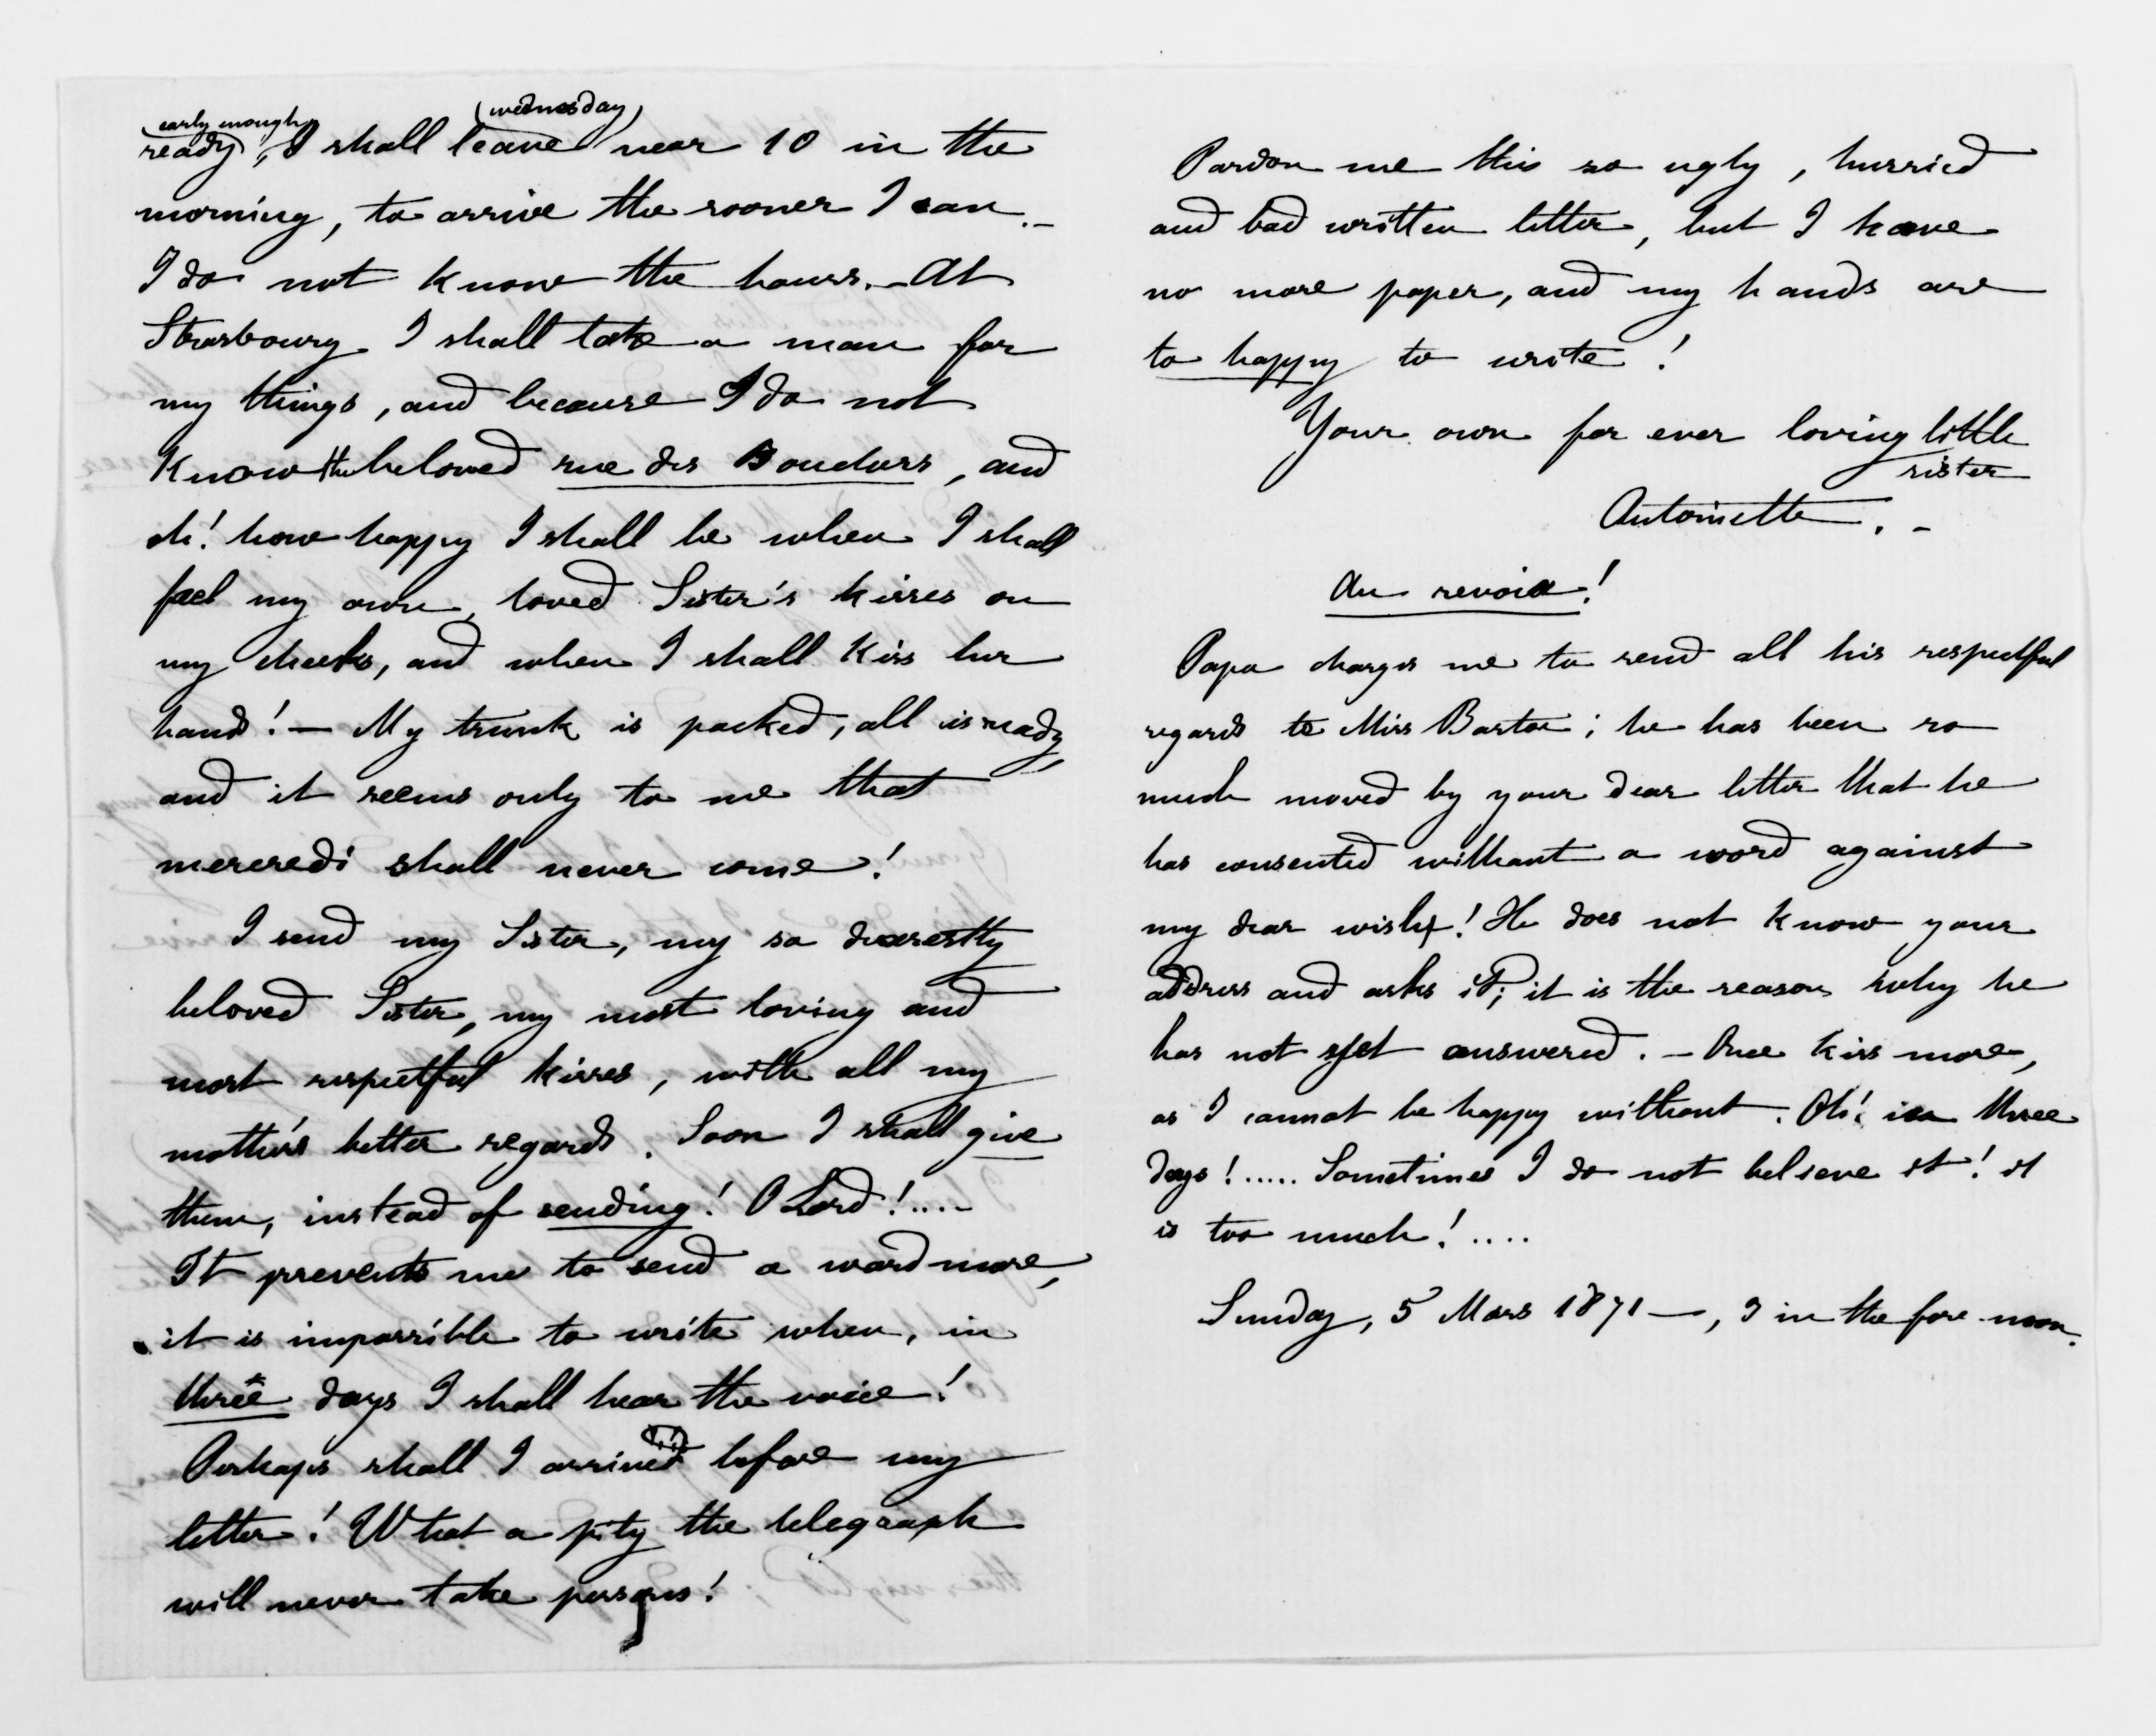 early enough (wednesday)
ready, I shall leave near 10 in the
morning, to arrive the sooner I can.-
I do not know the hours.- At
Strasbourg I shall take a man for
my things, and because I do not
know the beloved rue des , and
oh! how happy I shall be when I shall
feel my own, loved Sister's kisses on
my cheeks, and when I shall kiss her
hand! - My trunk is packed, all is ready,
and it seems only to me that
mercredi shall never come!
I send my Sister, my so dearestly
beloved Sister, my most loving and
most respectful kisses, with all my
mother's better regards. Soon I shall give
them, instead of sending! O Lord!....
It prevents me to send a word more,
it is impossible to write when, in
three days I shall hear the voice!
Perhaps shall I arrive before my
letter! What a pity the telegraph
will never take persons!
Pardon me this so ugly, hurried
and bad written letter, but I have
no more paper, and my hands are
to happy to write!
Your own for ever loving little
sister
Antoinette.-
Au revoir!
Papa charges me to send all his respectful
regards to Miss Barton; he has been so
much moved by your dear letter that he
has consented without a word against
my dear wish! He does not know your
address and asks it; it is the reason why he
has not yet answered. - Once kiss more,
as I cannot be happy without. Oh! in three
days!..... Sometimes I do not believe it! it
is too much!....
Sunday, 5 Mars 1871 -, in the fore-noon.